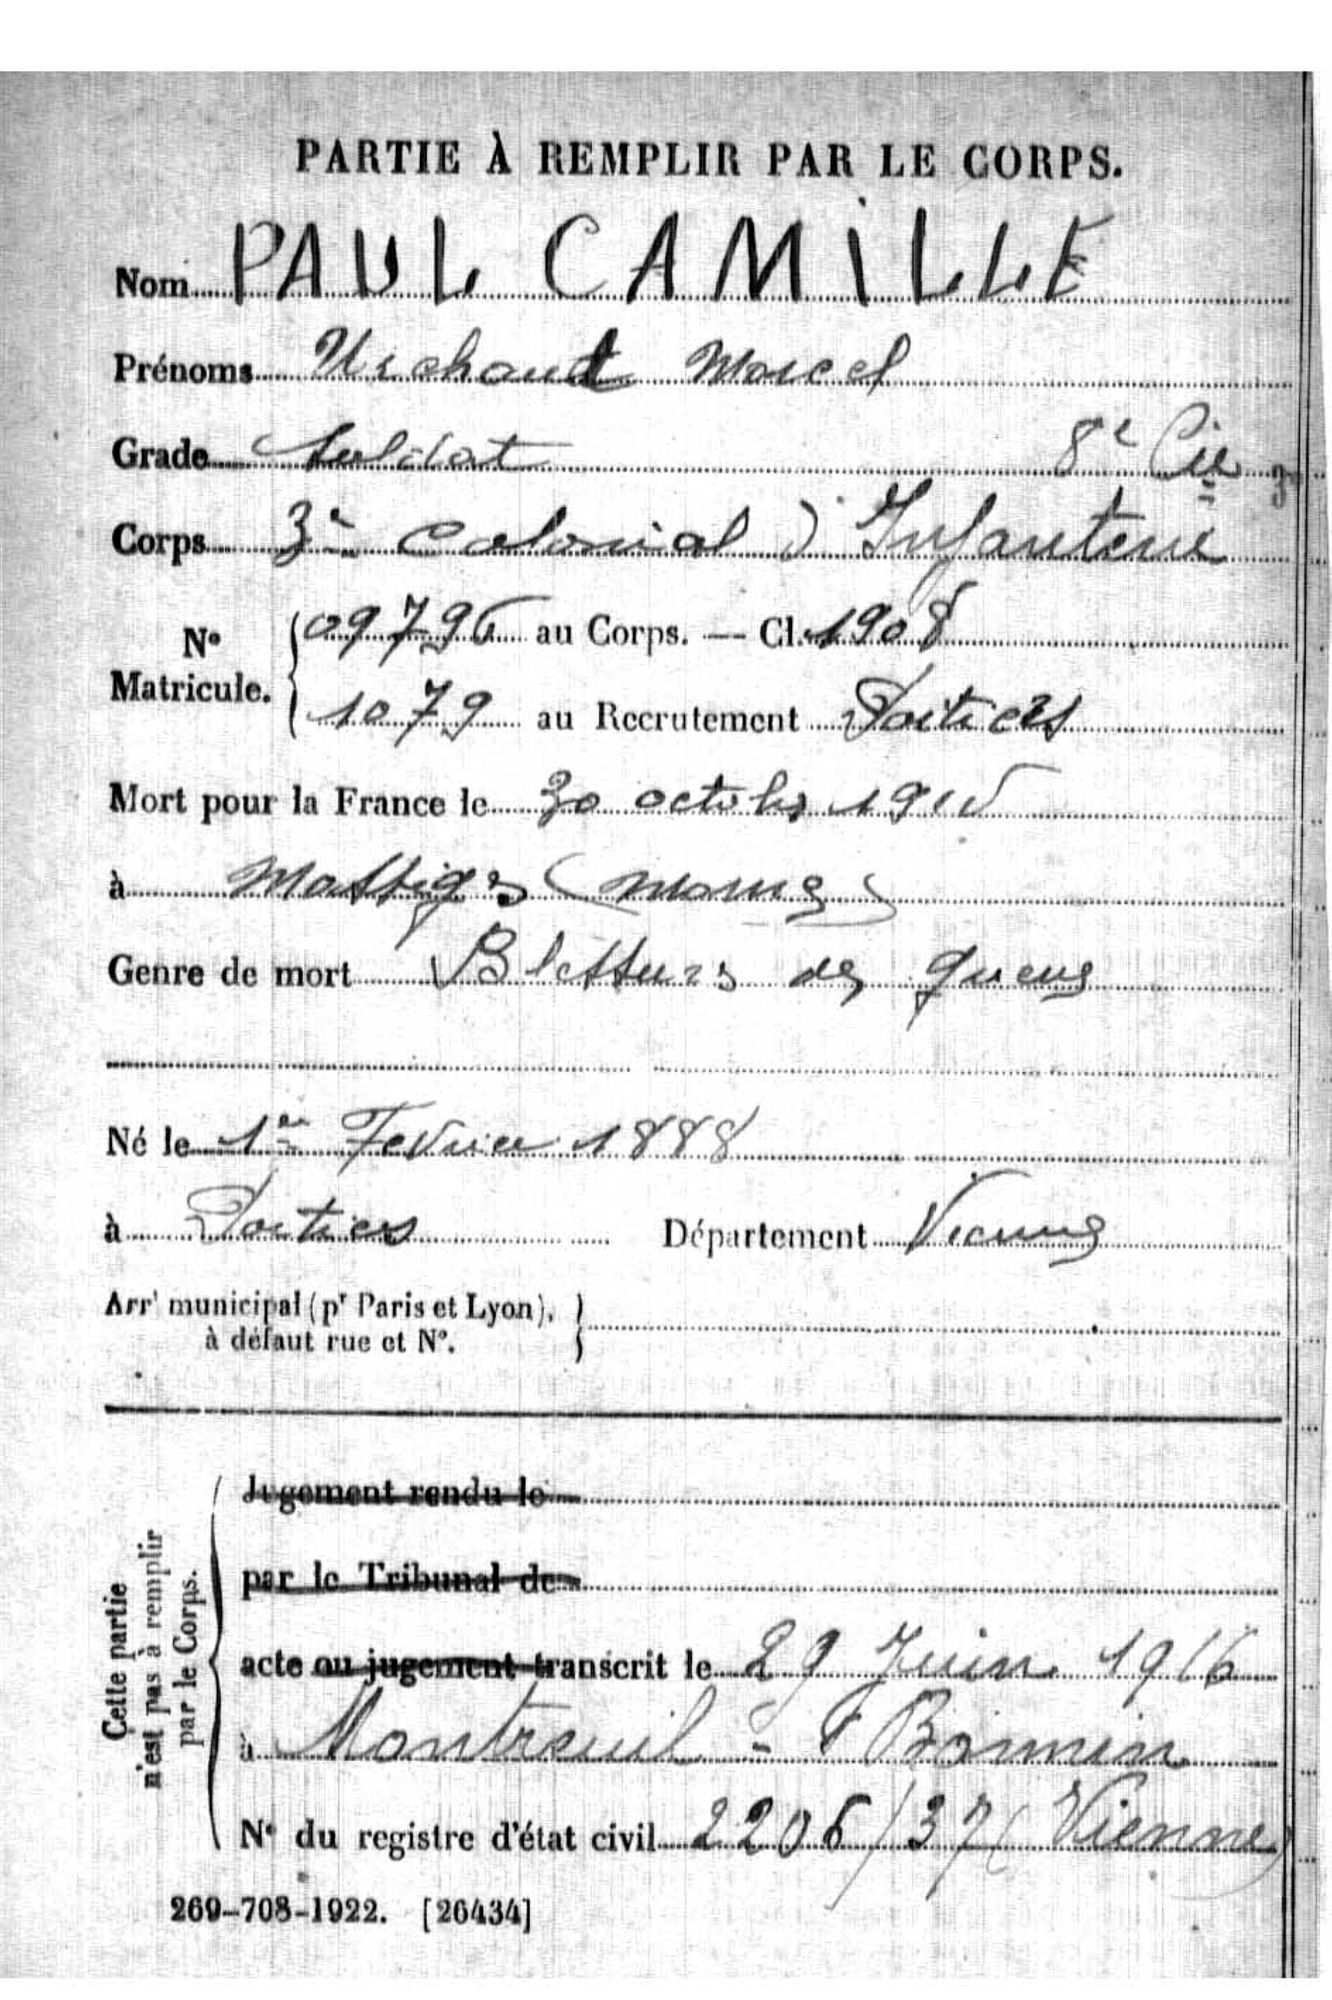 PARTIE À REMPLIR PAR LE CORPS.
Nom PAUL CAMILLE
Prénoms Marcel
Grade Soldat 8e Cie
Corps 3e Colonial d'Infanterie
No Matricule. 09796 au Corps. — Cl. 1908
1079 au Recrutement Poitiers
Mort pour la France le 30 octobre 1915
à Massiges (Marne)
Genre de mort Blessures de guerre
Né le 1er Fevrier 1888
à Poitiers Département Vienne
Arrt municipal (pr Paris et Lyon),
à défaut rue et No.
Cette partie
n'est pas à remplir
par le Corps.
Jugement rendu le
par le Tribunal de
acte ou jugement transcrit le 29 Juin 1916
à Montreuil - Bonnin
No du registre d'état civil 2206/37 (Vienne)
269-708-1922. [26434]